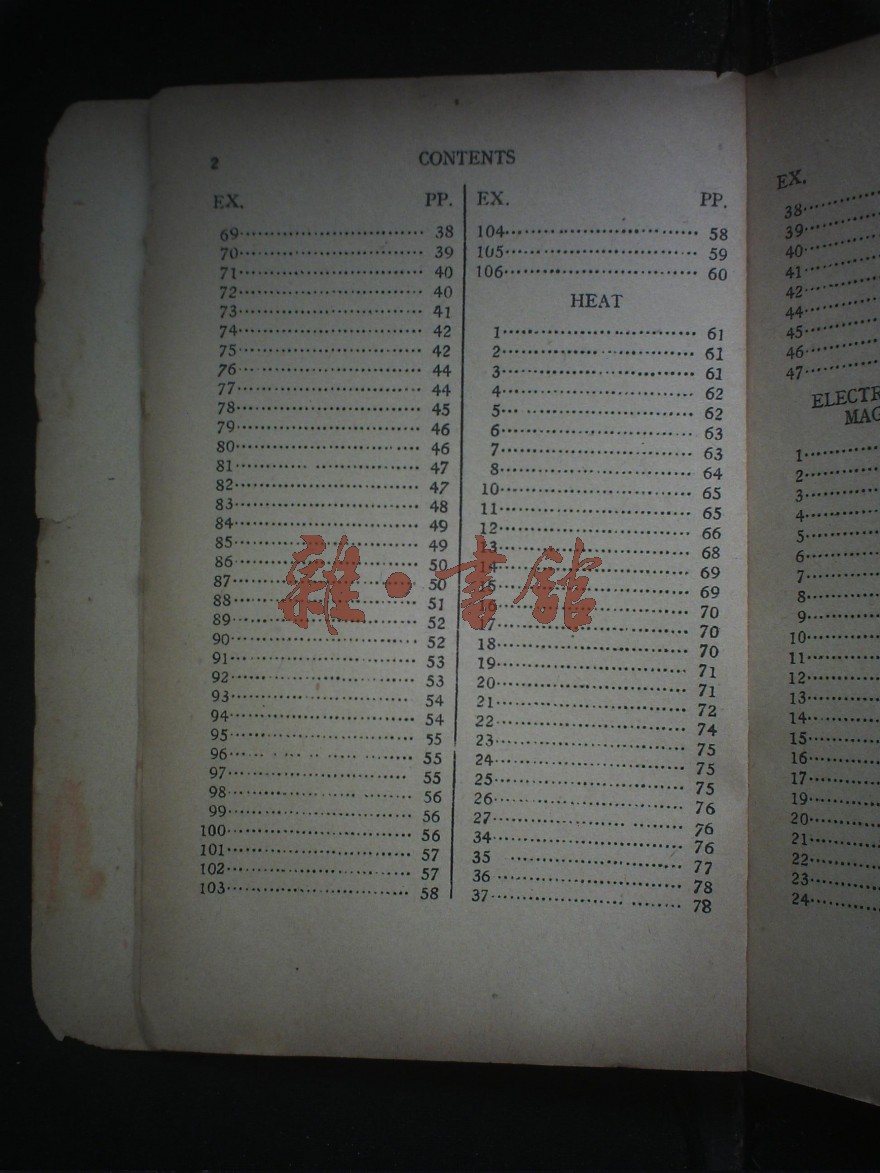 2 CONTENTS
EX. PP.
69 38
70 39
71 40
72 40
73 41
74 42
75 42
76 44
77 44
78 45
79 46
80 46
81 47
82 47
83 48
84 49
85 49
86 50
87 50
88 51
89 52
90 52
91 53
92 53
93 54
94 54
95 55
96 55
97 55
98 56
99 56
100 56
101 57
102 57
103 58
EX. PP.
104 58
105 59
106 60
HEAT
1 61
2 61
3 61
4 62
5 62
6 63
7 63
8 64
10 65
11 65
12 66
13 68
14 69
15 69
16 70
17 70
18 70
19 71
20 71
21 72
22 74
23 75
24 75
25 75
26 76
27 76
34 76
35 77
36 78
37 78
雜·書館
EX.
38
39
40
41
42
44
45
46
47
1
2
3
4
5
6
7
8
9
10
11
12
13
14
15
16
17
19
20
21
22
23
24